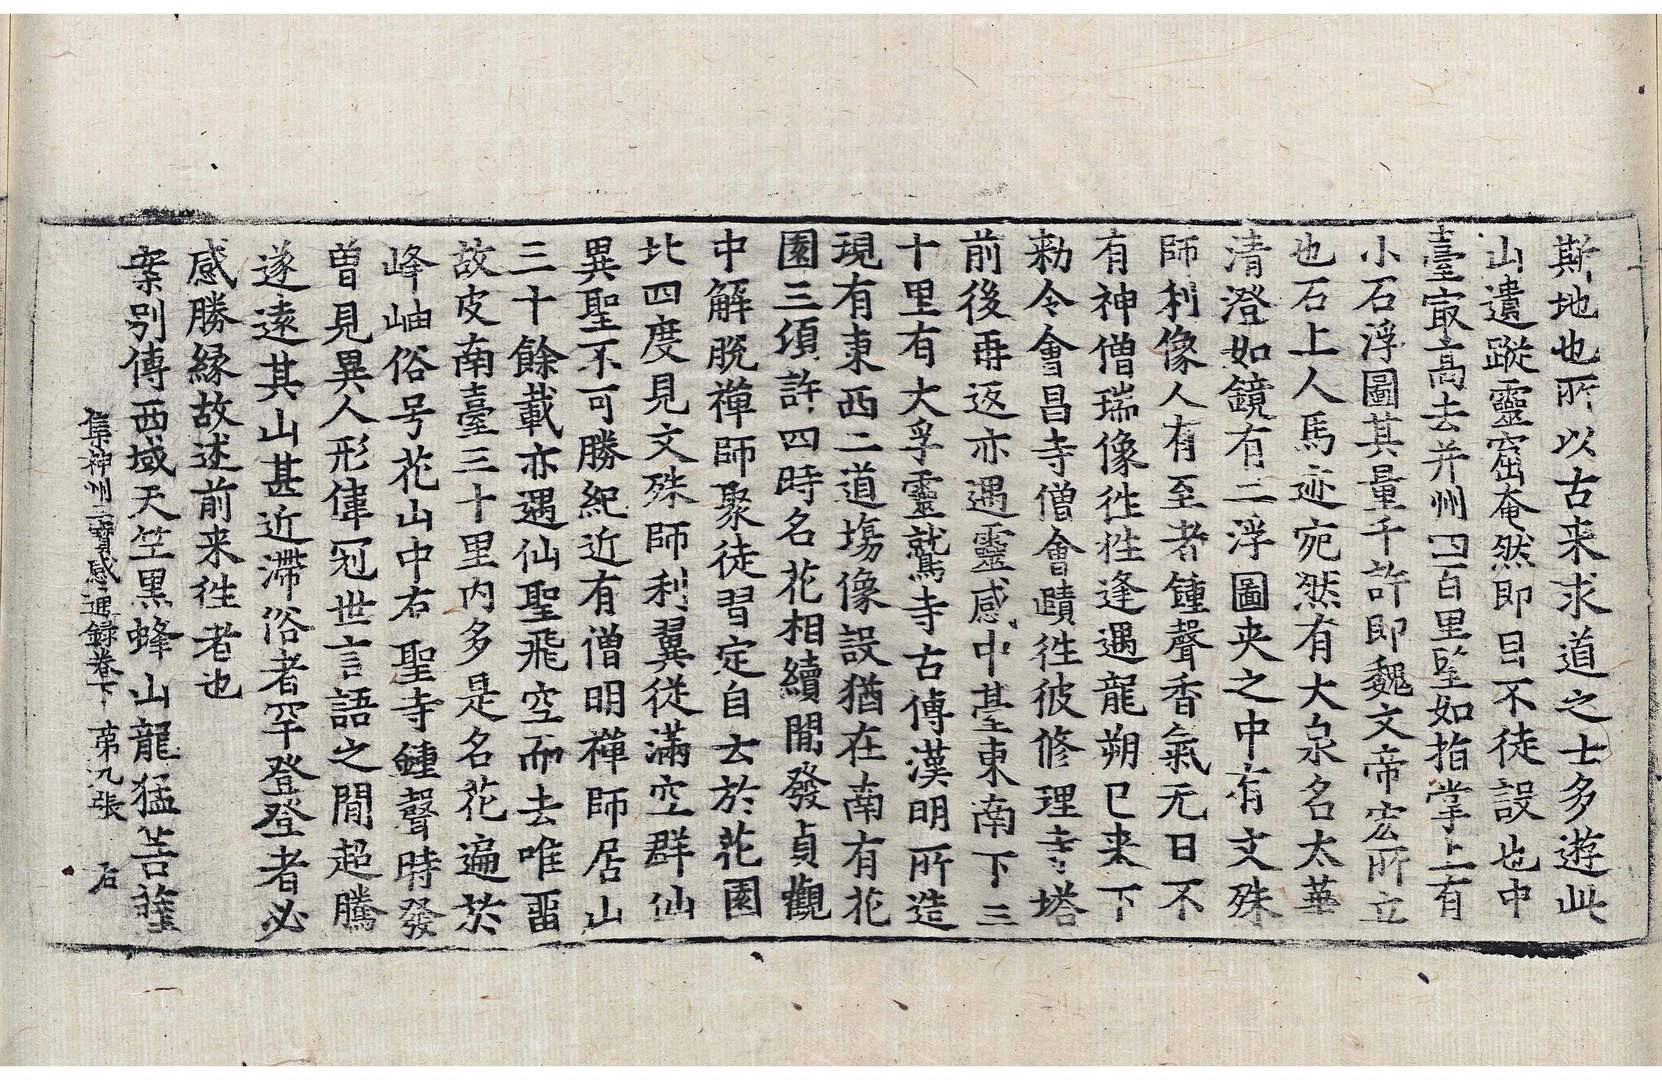 斯地也所以古来求道之士多遊此
山遺蹤靈窟奄然即目不徒設也中
臺㝡高去并州四百里望如指掌上有
小石浮圖其量千許即魏文帝宏所立
也石上人馬迹宛然有大泉名太華
清澄如鏡有二浮圖夾之中有文殊
師利像人有至者鍾聲香氣无日不
有神僧瑞像徃徃逢遇龍朔已来下
勑令會昌寺僧會賾徃彼修理寺塔
前後再返亦遇靈感中臺東南下三
十里有大孚靈鷲寺古傳漢明所造
現有東西二道場像設猶在南有花
園三頃許四時名花相續間發貞觀
中解脫禪師聚徒習定自云於花園
北四度見文殊師利翼從滿空群仙
異聖不可勝紀近有僧明禪師居山
三十餘載亦遇仙聖飛空而去唯畱
故皮南臺三十里內多是名花遍於
峰岫俗号花山中右聖寺鍾聲時發
曽見異人形偉冠世言語之間超騰
遂遠其山甚近滯俗者罕登登者必
感勝緣故述前来徃者也
案别傳西域天竺黒蜂山龍猛菩薩
集神州三寶感通録卷下 第九張 石